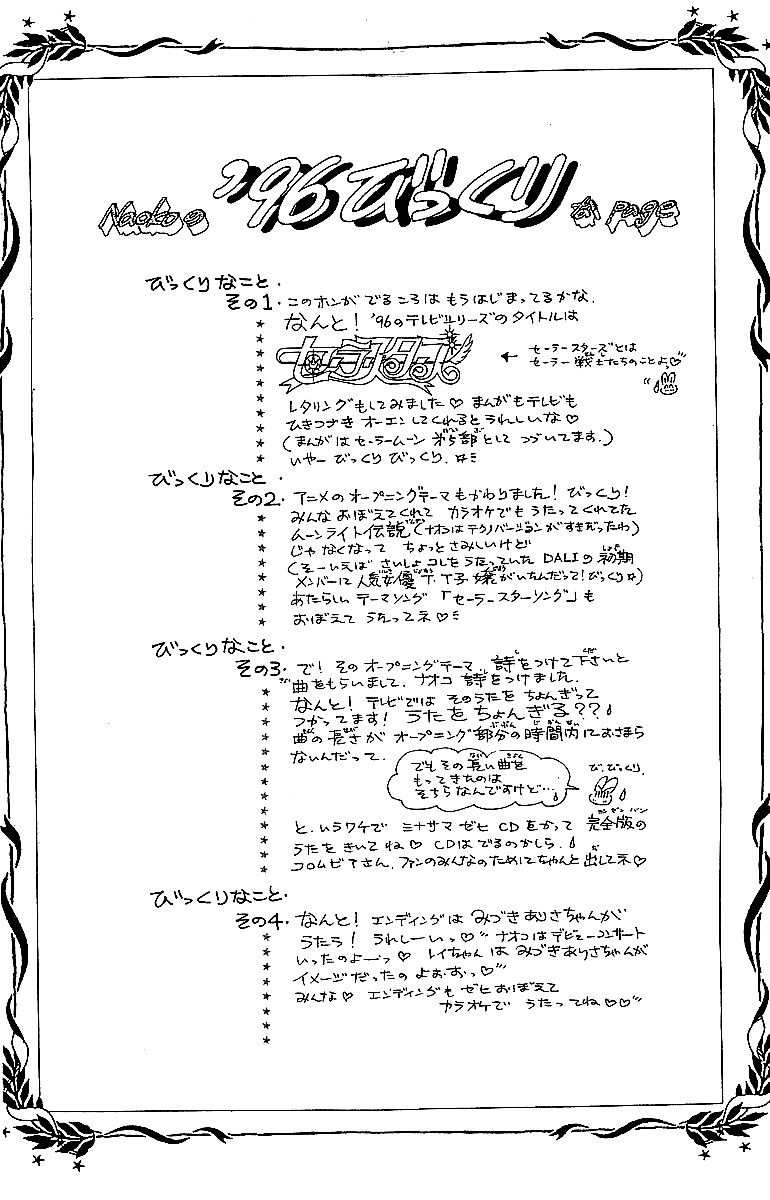 Naokoの '96びっくりな page
びっくりなこと.
その1. このホンがでるころは もうはじまってるかな.
なんと! '96のテレビシリーズのタイトルは
セーラースターズ
← セーラースターズとは
セーラー戦士たちのことよっ♡
レタリングもしてみました♡ まんがもテレビも
ひきつづき オーエンしてくれると うれしいな♡
(まんがは セーラームーン 第5部として つづいてます.)
いやー びっくり びっくり. ☆ミ
びっくりなこと.
その2. アニメのオープニングテーマもかわりました! びっくり!
みんな おぼえてくれて カラオケでも うたってくれてた
ムーンライト伝説 (ナオコはテクノバージョンがすきだったわ)
じゃ なくなって ちょっと さみしいけど
(そーいえば さいしょ コレをうたっていた DALIの初期
メンバーに 人気女優 T.T子嬢がいたんだって! びっくり☆)
あたらしい テーマソング 「セーラースターソング」も
おぼえて うたってネ♡ミ
びっくりなこと.
その3. で! その オープニングテーマ. 詩をつけて下さいと
曲をもらいまして. ナオコ 詩をつけました.
なんと! テレビでは そのうたを ちょんぎって
つかってます! うたを ちょんぎる??
曲の長さが オープニング部分の時間内におさまら
ないんだって.
でもその長い曲を
もってきたのは
そちらなんですけど…
び.びっくり.
と.いうワケで ミナサマ ゼヒ CDをかって 完全版の
うたを きいてね♡ CDは でるのかしら.
コロムビアさん. ファンのみんなのために ちゃんと 出してネ♡
びっくりなこと.
その4. なんと! エンディングは みづきありさちゃんが
うたう! うれしーいっ♡ ナオコはデビューコンサート
いったのよーっ♡ レイちゃんは みづきありさちゃんが
イメージだったの よぉおっ♡
みんな♡ エンディングも ゼヒ おぼえて
カラオケで うたってね♡♡